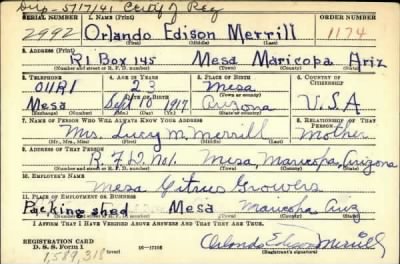 Dup - 5/17/41 Certif of Reg
SERIAL NUMBER 1. NAME (Print) ORDER NUMBER
2992 Orlando Edison Merrill 1174
(First) (Middle) (Last)
2. ADDRESS (Print)
R1 Box 145 Mesa Maricopa Ariz
(Number and street or R. F. D. number) (Town) (County) (State)
3. TELEPHONE 4. AGE IN YEARS 5. PLACE OF BIRTH 6. COUNTRY OF CITIZENSHIP
011R1 23 Mesa
(Town or county)
DATE OF BIRTH
Mesa Sept 10 1917 Arizona U.S.A
(Exchange) (Number) (Mo.) (Day) (Yr.) (State or country)
7. NAME OF PERSON WHO WILL ALWAYS KNOW YOUR ADDRESS 8. RELATIONSHIP OF THAT PERSON
Mrs. Lucy M. Merrill Mother
(Mr., Mrs., Miss) (First) (Middle) (Last)
9. ADDRESS OF THAT PERSON
R.F.D. No 1. Mesa, Maricopa, Arizona
(Number and street or R. F. D. number) (Town) (County) (State)
10. EMPLOYER'S NAME
Mesa Citrus Growers
11. PLACE OF EMPLOYMENT OR BUSINESS
Packing shed Mesa Maricopa Ariz
(Number and street or R. F. D. number) (Town) (County) (State)
I AFFIRM THAT I HAVE VERIFIED ABOVE ANSWERS AND THAT THEY ARE TRUE.
REGISTRATION CARD
D. S. S. Form 1 (over) 16-17105 Orlando Edison Merrill
1,589,318 (Registrant's signature)